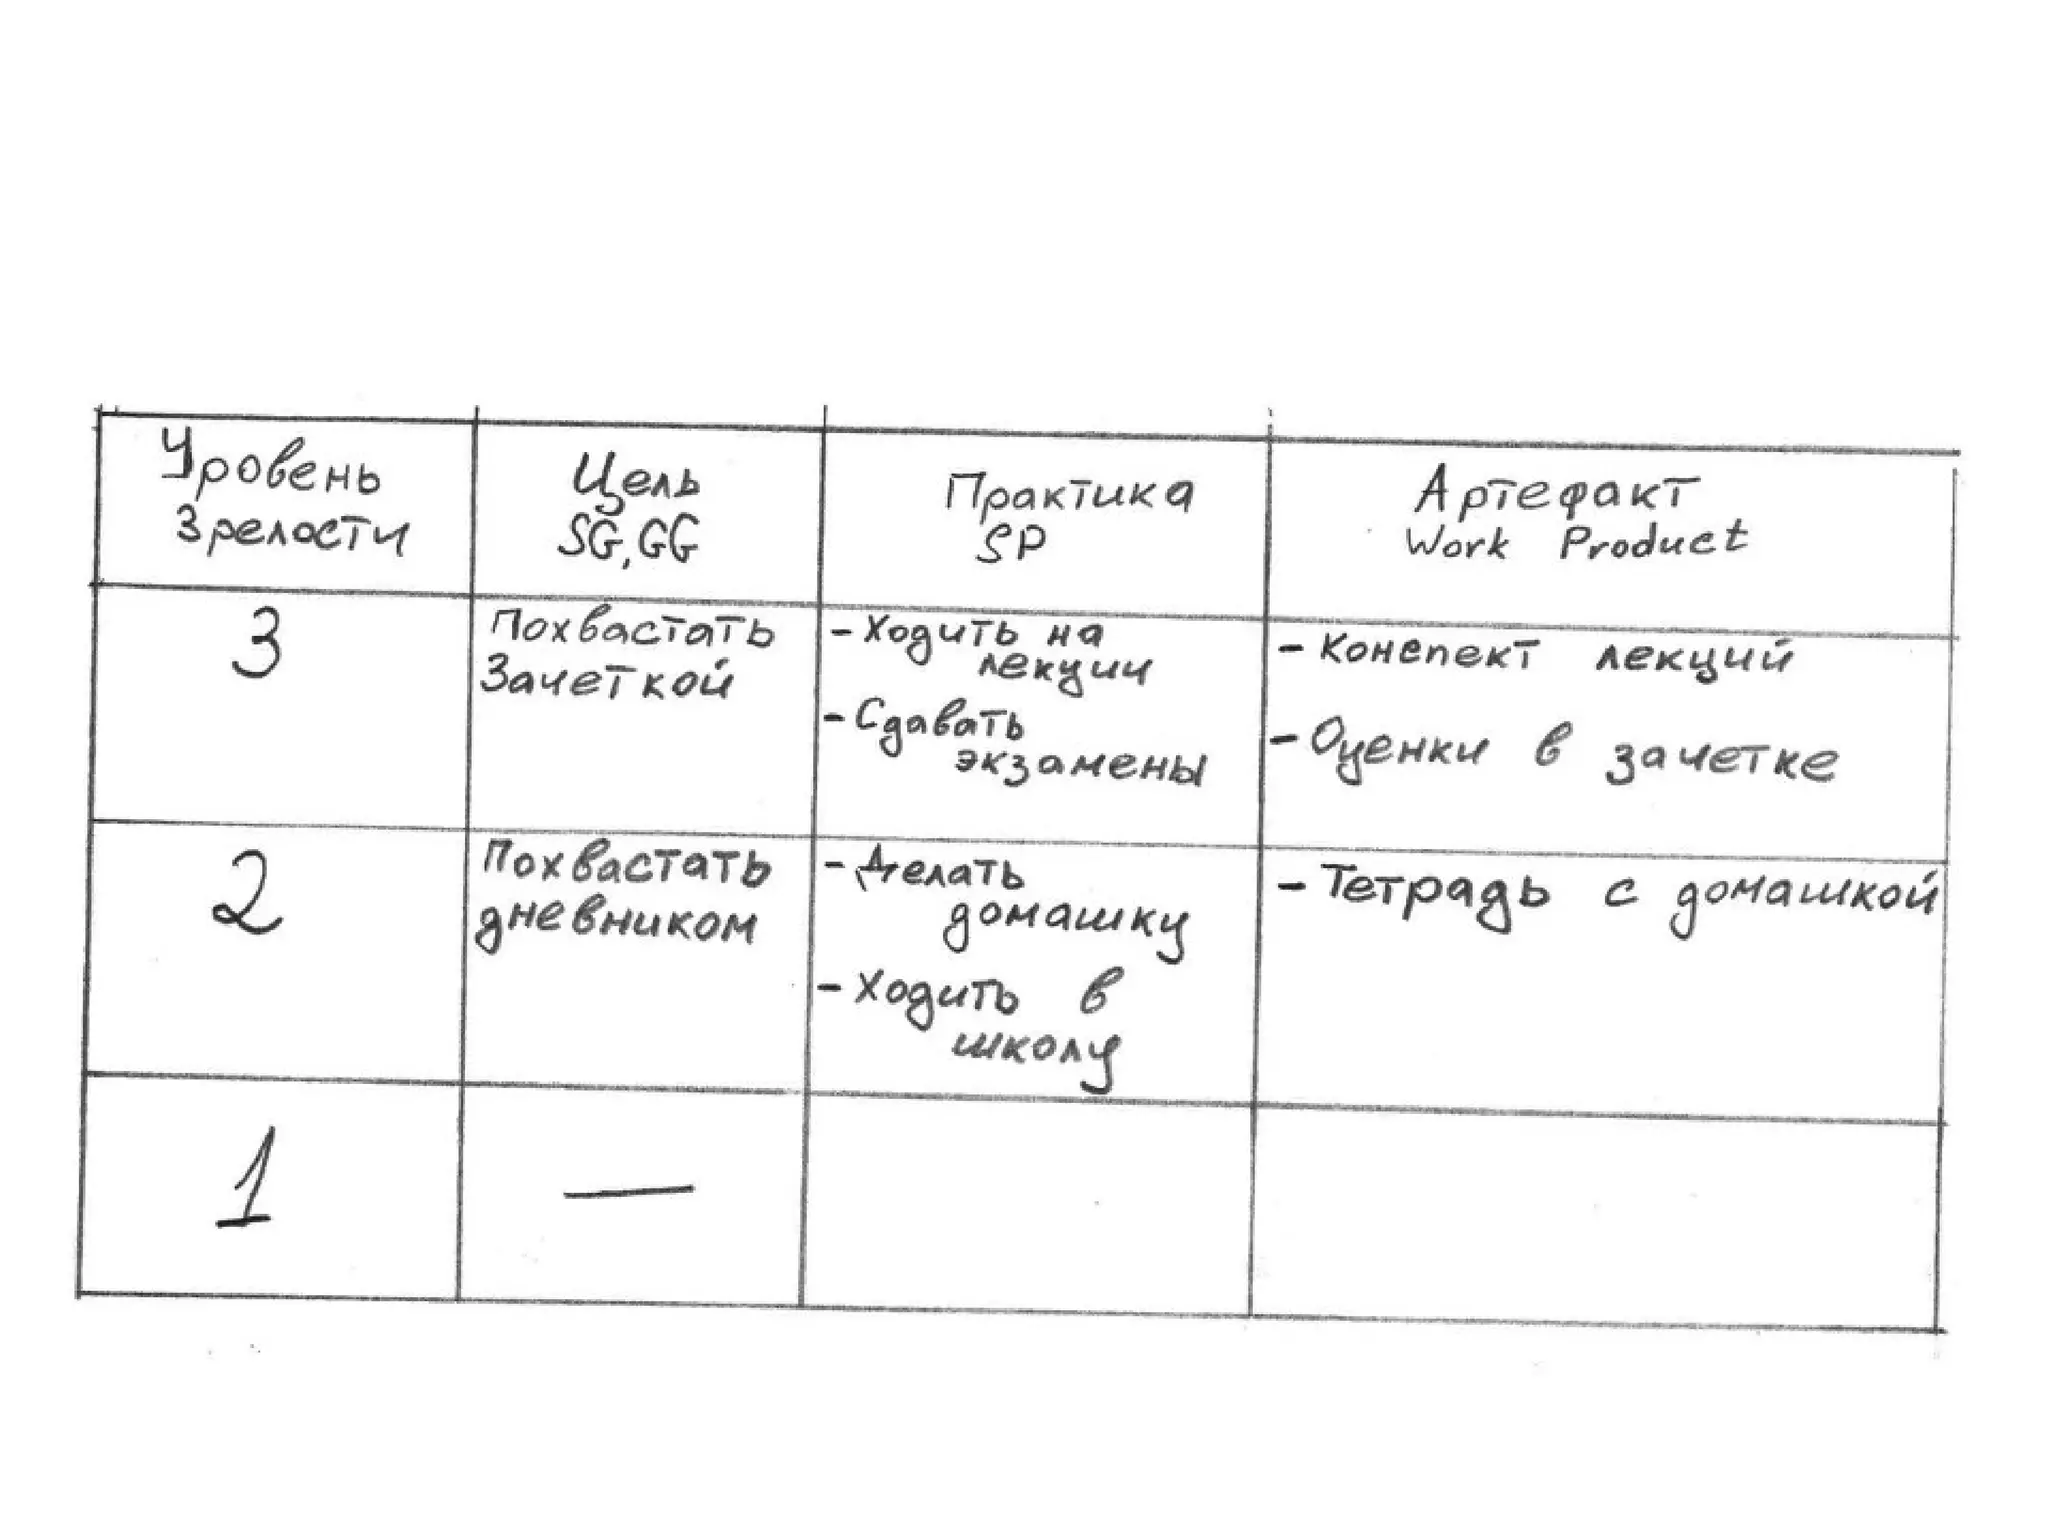 Уровень
Зрелости
Цель
SG, GG
Практика
SP
Артефакт
Work Product
3
Похвастать
Зачеткой
- Ходить на
лекции
- Сдавать
экзамены
- Конспект лекций
- Оценки в зачетке
2
Похвастать
дневником
- Делать
домашку
- Ходить в
школу
- Тетрадь с домашкой
1
—